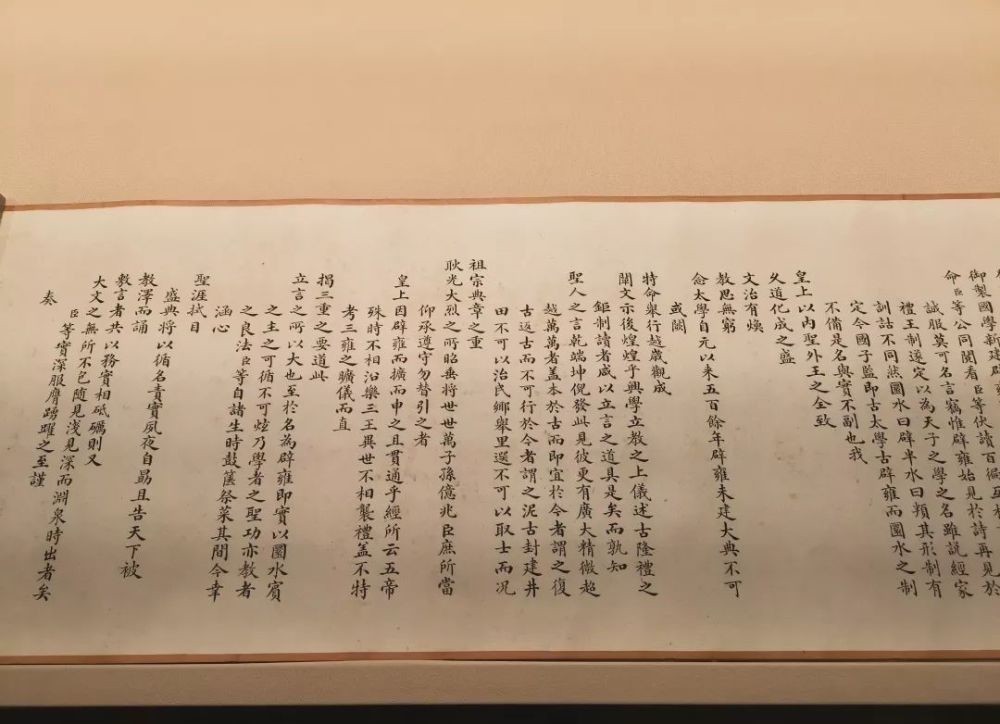 御製國學新建辟雍
命臣等公同閱看臣等伏讀百徧
誠服莫可名言竊惟辟雍始見於詩再見於
禮王制遂定以為天子之學之名雖說經家
訓詁不同然圜水曰辟半水曰頖其形制有
定今國子監即古太學古辟雍而圜水之制
不備是名與實不副也我
皇上以內聖外王之全致
久道化成之盛
文治有煥
教思無窮
念太學自元以來五百餘年辟雍未建大典不可
或闕
特命舉行越歲觀成
闡文示後煌煌乎興學立教之上儀述古隆禮之
鉅制讀者咸以立言之道具是矣而孰知
聖人之言乾端坤倪發此見彼更有廣大精微超
越萬萬者蓋本於古而即宜於今者謂之復
古返古而不可行於今者謂之泥古封建井
田不可以治民鄉舉里選不可以取士而況
祖宗典章之重
耿光大烈之所昭垂將世世萬子孫億兆臣庶所當
仰承遵守勿替引之者
皇上因辟雍而擴而申之且貫通乎經所云五帝
殊時不相沿樂三王異世不相襲禮蓋不特
考三雍之曠儀而直
揭三重之要道此
立言之所以大也至於名為辟雍即實以圜水賓
之主之可循不可炫乃學者之聖功亦教者
之良法臣等自諸生時鼓篋祭菜其間今幸
涵心
聖涯拭目
盛典將以循名責實夙夜自勗且告天下被
教澤而誦
敷言者共以務實相砥礪則又
大文之無所不包隨見淺見深而淵泉時出者矣
臣等實深服膺踴躍之至謹
奏